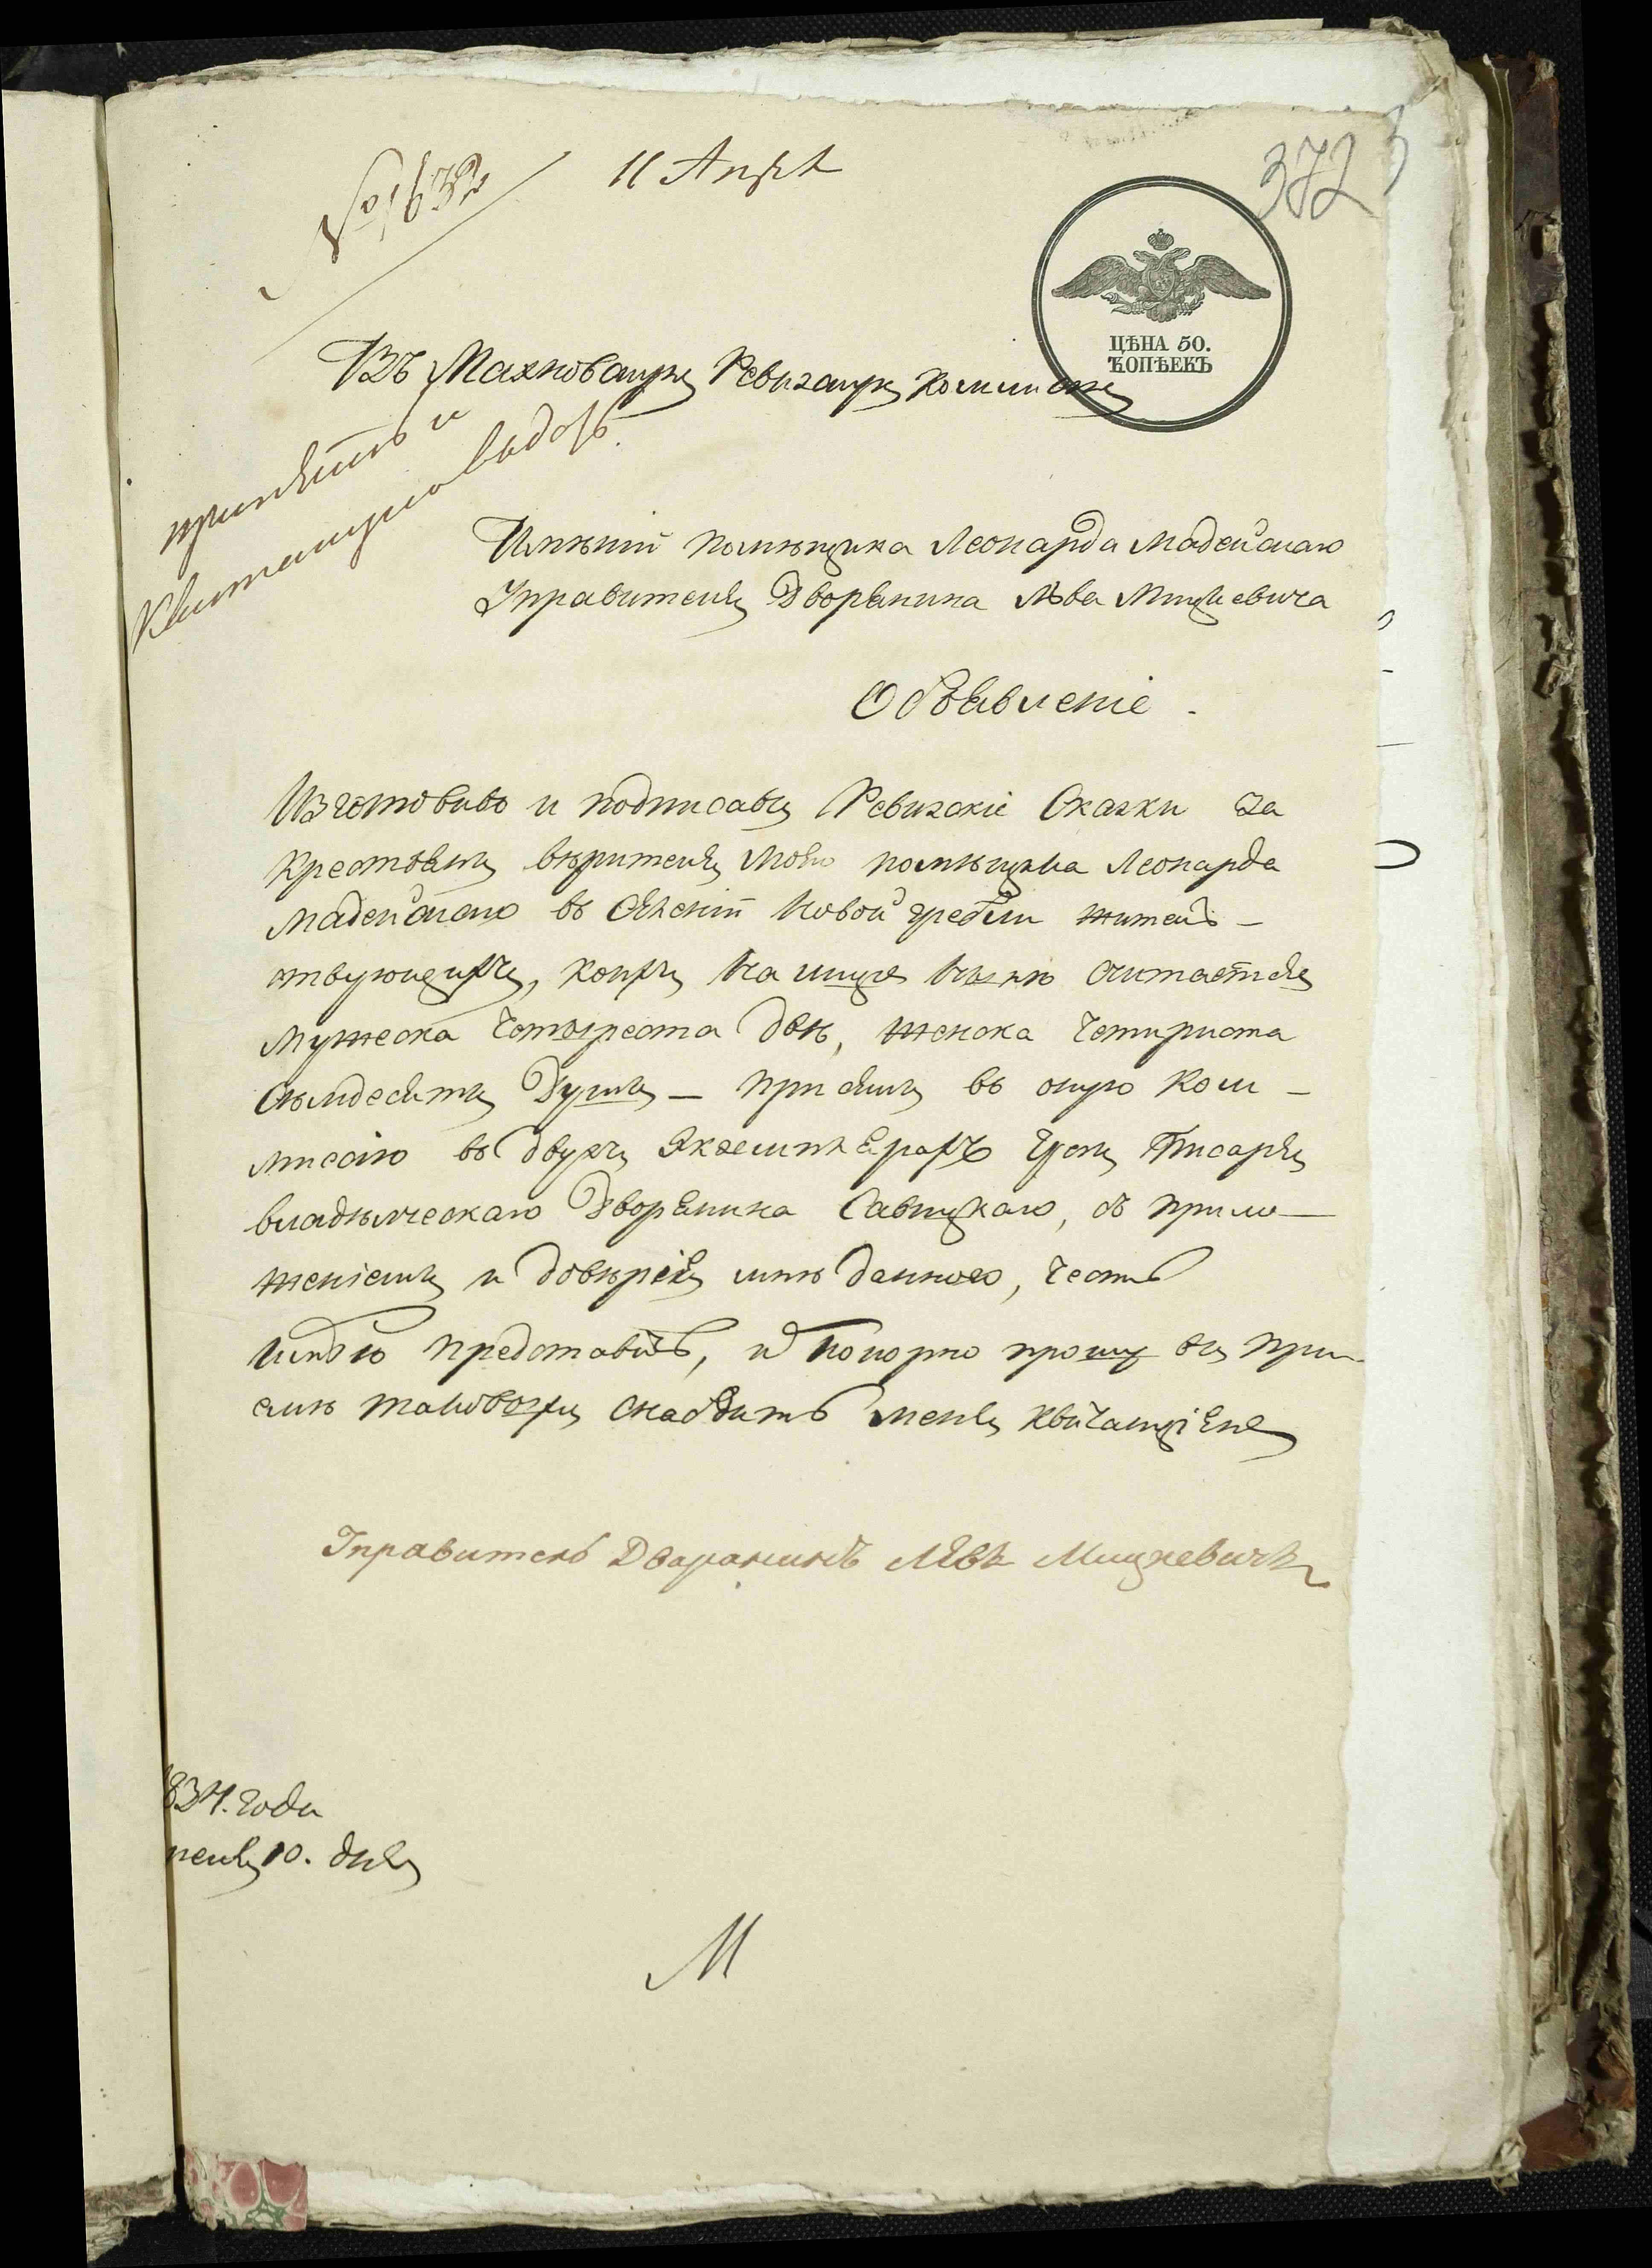 № 1632
11 Апрѣ
372
ЦѢНА 50.
КОПѢЕКЪ
Въ Махновскую Ревизскую Коммисию
принять и
квитанцию выдать.
Имѣний помѣщика Леонарда Мадейскаго
Управителя Дворянина Лѣва Мицкевича
Объявление.
Изготовивъ и подписавъ Ревизскіе Сказки за
крестьянъ вѣрителя Моего помѣщика Леонарда
Мадейскаго въ селеніи Новой гребли житель-
ствующихъ, коихъ на лице нынѣ считается
мужеска четыреста двѣ, женска четириста
съмдесятъ Душъ — при семъ въ оную Ком-
мисію въ двухъ Экземплярахъ чрезъ Писаря
Дворянина Савицкаго, съ прило-
женіемъ и довѣрія мнѣ данного, честь
имѣю представить, и покорно прошу въ при-
емѣ таковыхъ снабдить меня квитанціею
Управитель Дваранинъ Лѣвъ Мицкевичъ
834. года
10. дня
М